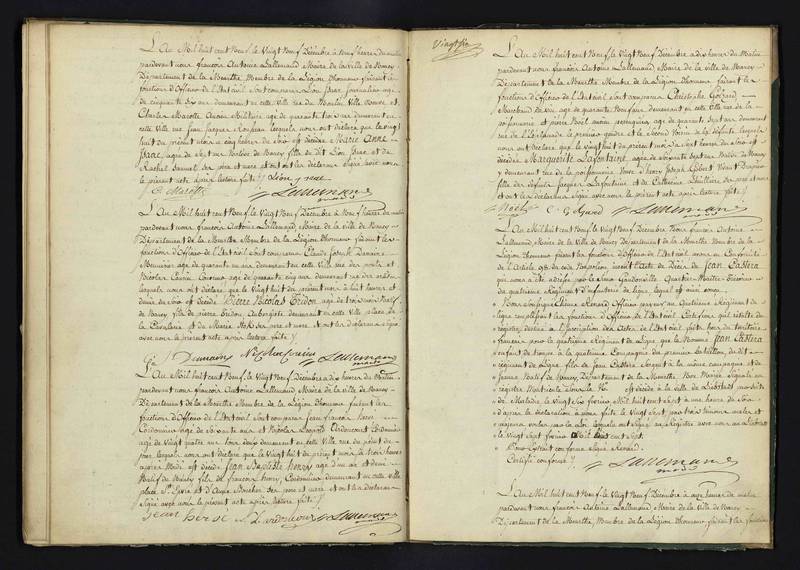 L'an Mil huit cent Neuf, le Vingt Neuf Décembre à neuf heures du matin
pardevant nous françois Antoine Lallemand Maire de la ville de Nancy
Département de la Meurthe Membre de la Légion d'honneur faisant les
fonctions d'Officier de l'Etat civil sont comparus Lion Isaac journalier agé
de cinquante six ans demeurant en cette ville rue du Moulin Ville Neuve et
Charles Marotte Ancien Militaire agé de quarante trois ans demeurant en
cette ville rue Jean Jacques Rousseau lesquels nous ont déclaré que le vingt
huit du présent mois à cinq heures du soir est décédée Marie Anne
Isaac agée de sept ans Native de Nancy fille du dit Lion Isaac et de
Rachel Samuel ses père et mère et ont les déclarans signé avec nous
le présent acte après lecture faite /.
C. Marotte Lallemand
maire
L'an Mil huit cent Neuf, le Vingt Neuf Décembre à Neuf heures du matin
pardevant nous françois Antoine Lallemand Maire de la ville de Nancy
Département de la Meurthe Membre de la Légion d'honneur faisant les
fonctions d'Officier de l'Etat civil sont comparus Claude Joseph
Menuisier agé de quarante un ans demeurant en cette ville rue des
Nicolas agé de quarante cinq ans demeurant rue des
lesquels nous ont déclaré que le Vingt huit du présent mois à huit heures et
demie du soir est décédé Pierre Nicolas Tridon agé de trois mois Natif
de Nancy fils de pierre Tridon Aubergiste demeurant en cette Ville place de
la et de Marie ses père et mère. et ont les déclarans signé
avec nous le présent acte après lecture faite /.
Lallemand
maire
L'An Mil huit cent Neuf, le Vingt Neuf Décembre à dix heures du Matin
pardevant nous françois Antoine Lallemand Maire de la ville de Nancy
Département de la Meurthe Membre de la Légion d'honneur faisant les
fonctions d'Officier de l'Etat civil sont comparus Jean françois
Cordonnier agé de soixante ans et Nicolas Leopold Cordonnier
agé de Vingt quatre ans tous deux demeurant en cette Ville rue du point du
jour lesquels nous ont déclaré que le Vingt huit du présent mois à trois heures
après Midi est décédé Jean Baptiste henry agé d'un an et demi
Natif de Nancy fils de françois henry, Cordonnier demeurant en cette ville
place St. et d'Anne ses père et mère et ont les déclarans
signé avec nous le présent acte après lecture faite /.
Lallemand
maire
Vingt six
L'an Mil huit cent Neuf, le Vingt Neuf Décembre à dix heures du Matin
pardevant nous françois Antoine Lallemand Maire de la Ville de Nancy
Département de la Meurthe Membre de la Légion d'honneur faisant les
fonctions d'Officier de l'Etat civil sont comparus Christophe
Marchand de vin agé de quarante Neuf ans demeurant en cette Ville rue de la
poissonnerie et pierre Noël perruquier agé de quarante sept ans demeurant
rue de l'Esplanade le premier gendre et le Second Voisin de la défunte lesquels
nous ont déclaré que le vingt huit du présent mois à sept heures du soir est
décédée Marguerite Lafontaine agée de soixante sept ans Native de Nancy
y demeurant rue de la poissonnerie Veuve d'henry Joseph Gobert Vivant
fille des défunts jacques Lafontaine et de Catherine Lhuillier ses père et mère
et ont les déclarans signé avec nous le présent acte après lecture faite /.
Noël Lallemand
maire
L'An Mil huit cent Neuf, le Vingt Neuf Décembre Nous françois Antoine
Lallemand Maire de la Ville de Nancy Département de la Meurthe Membre de la
Légion d'honneur faisant les fonctions d'Officier de l'Etat civil avons en Conformité
de l'Article 98 du code Napoléon, inscrit l'acte de Décès de Jean
qui nous a été adressé par le Sieur Quartier Maitre Trésorier
du quatrième Régiment d'infanterie de ligne lequel est ainsi conçu
Nous Soussigné Officier payeur au Quatrième Régiment de
ligne remplissant les fonctions d'Officier de l'Etat civil Certifions qu'il résulte du
registre, destiné à l'inscription des Actes de l'Etat civil faits hors du territoire
français pour le quatrième Régiment de Ligne que le Nommé Jean
enfant de troupe à la quatrième Compagnie du premier bataillon, du dit
régiment de Ligne fils de Jean Sergent à la même compagnie et de
Natif de Nancy, Département de la Meurthe.
registre Matricule sous le No. est décédé à la Ville de Liebstadt
de Maladie le Vingt Six février Mil huit cent Sept à une heure du Soir
d'après la déclaration à nous faite le Vingt Sept par trois témoins males et
majeurs voulus par la loi lesquels ont signé au Registre avec nous
le Vingt Sept février Mil huit cent sept.
Pour Extrait conforme signé
Certifié conforme /.
Lallemand
maire
L'An Mil huit cent Neuf, le Vingt Neuf Décembre à onze heures du matin
pardevant nous françois Antoine Lallemand Maire de la Ville de Nancy
Département de la Meurthe, Membre de la Légion d'honneur faisant les fonctions